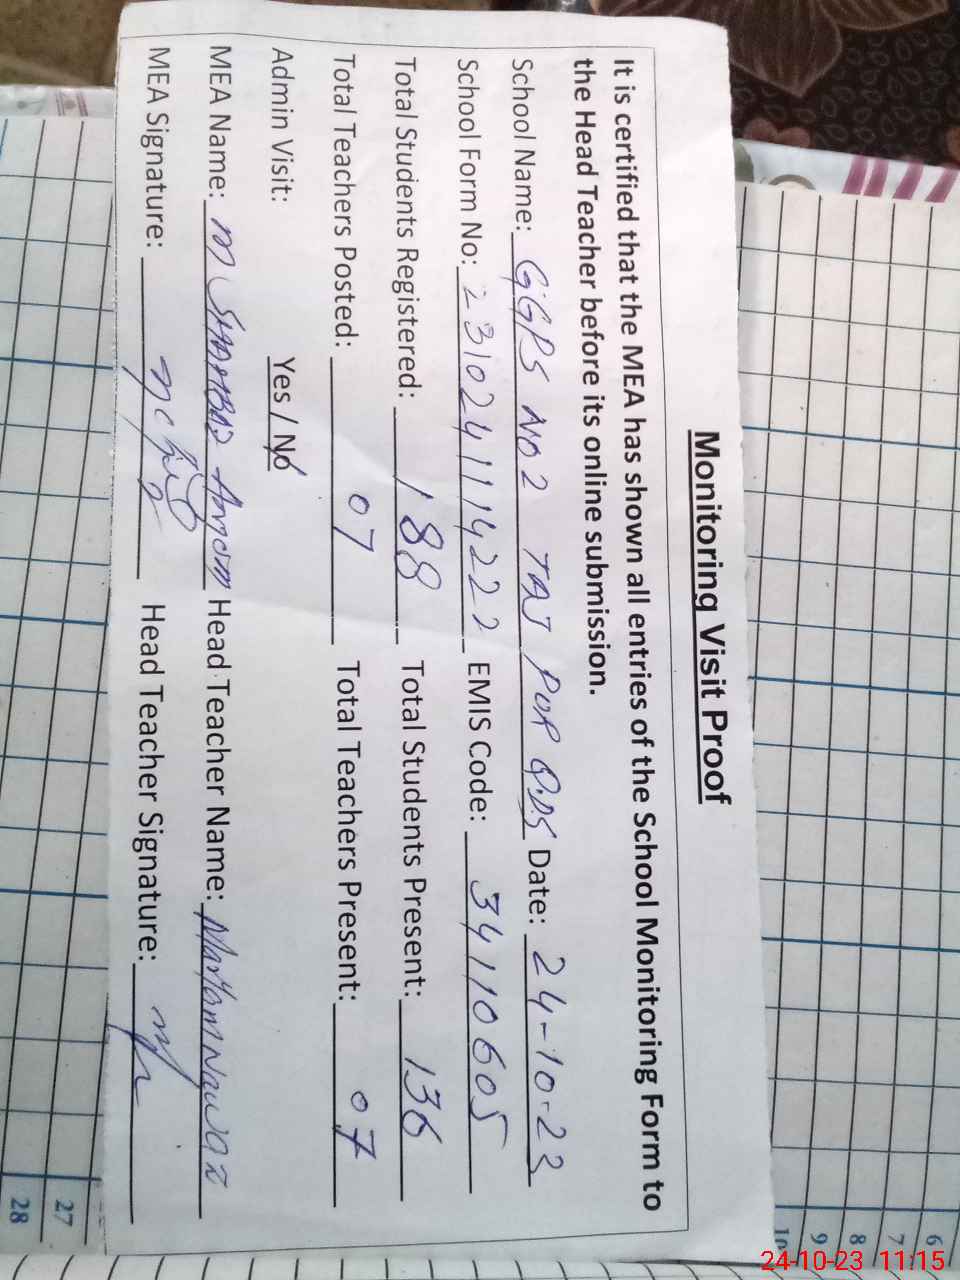 Monitoring Visit Proof
It is certified that the MEA has shown all entries of the School Monitoring Form to
the Head Teacher before its online submission.
School Name: GGPS NO 2 TAJ PUR Q.DS Date: 24-10-23
School Form No: 2310241114222 EMIS Code: 34110605
Total Students Registered: 188 Total Students Present: 136
Total Teachers Posted: 07 Total Teachers Present: 07
Admin Visit: Yes / No
MEA Name: M Head Teacher Name: Nawaz
MEA Signature: Head Teacher Signature:
6
7
8
9
10
27
28
24-10-23 11:15